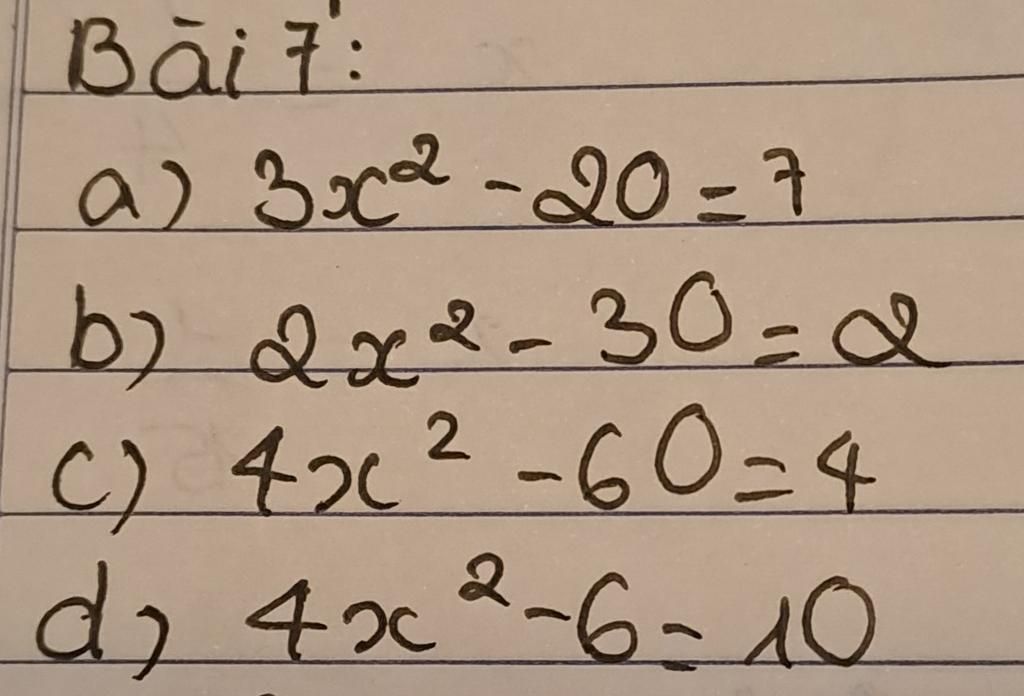 Bài 7:
a) 3x² - 20 = 7
b) 2x² - 30 = 2
c) 4x² - 60 = 4
d) 4x² - 6 = 10